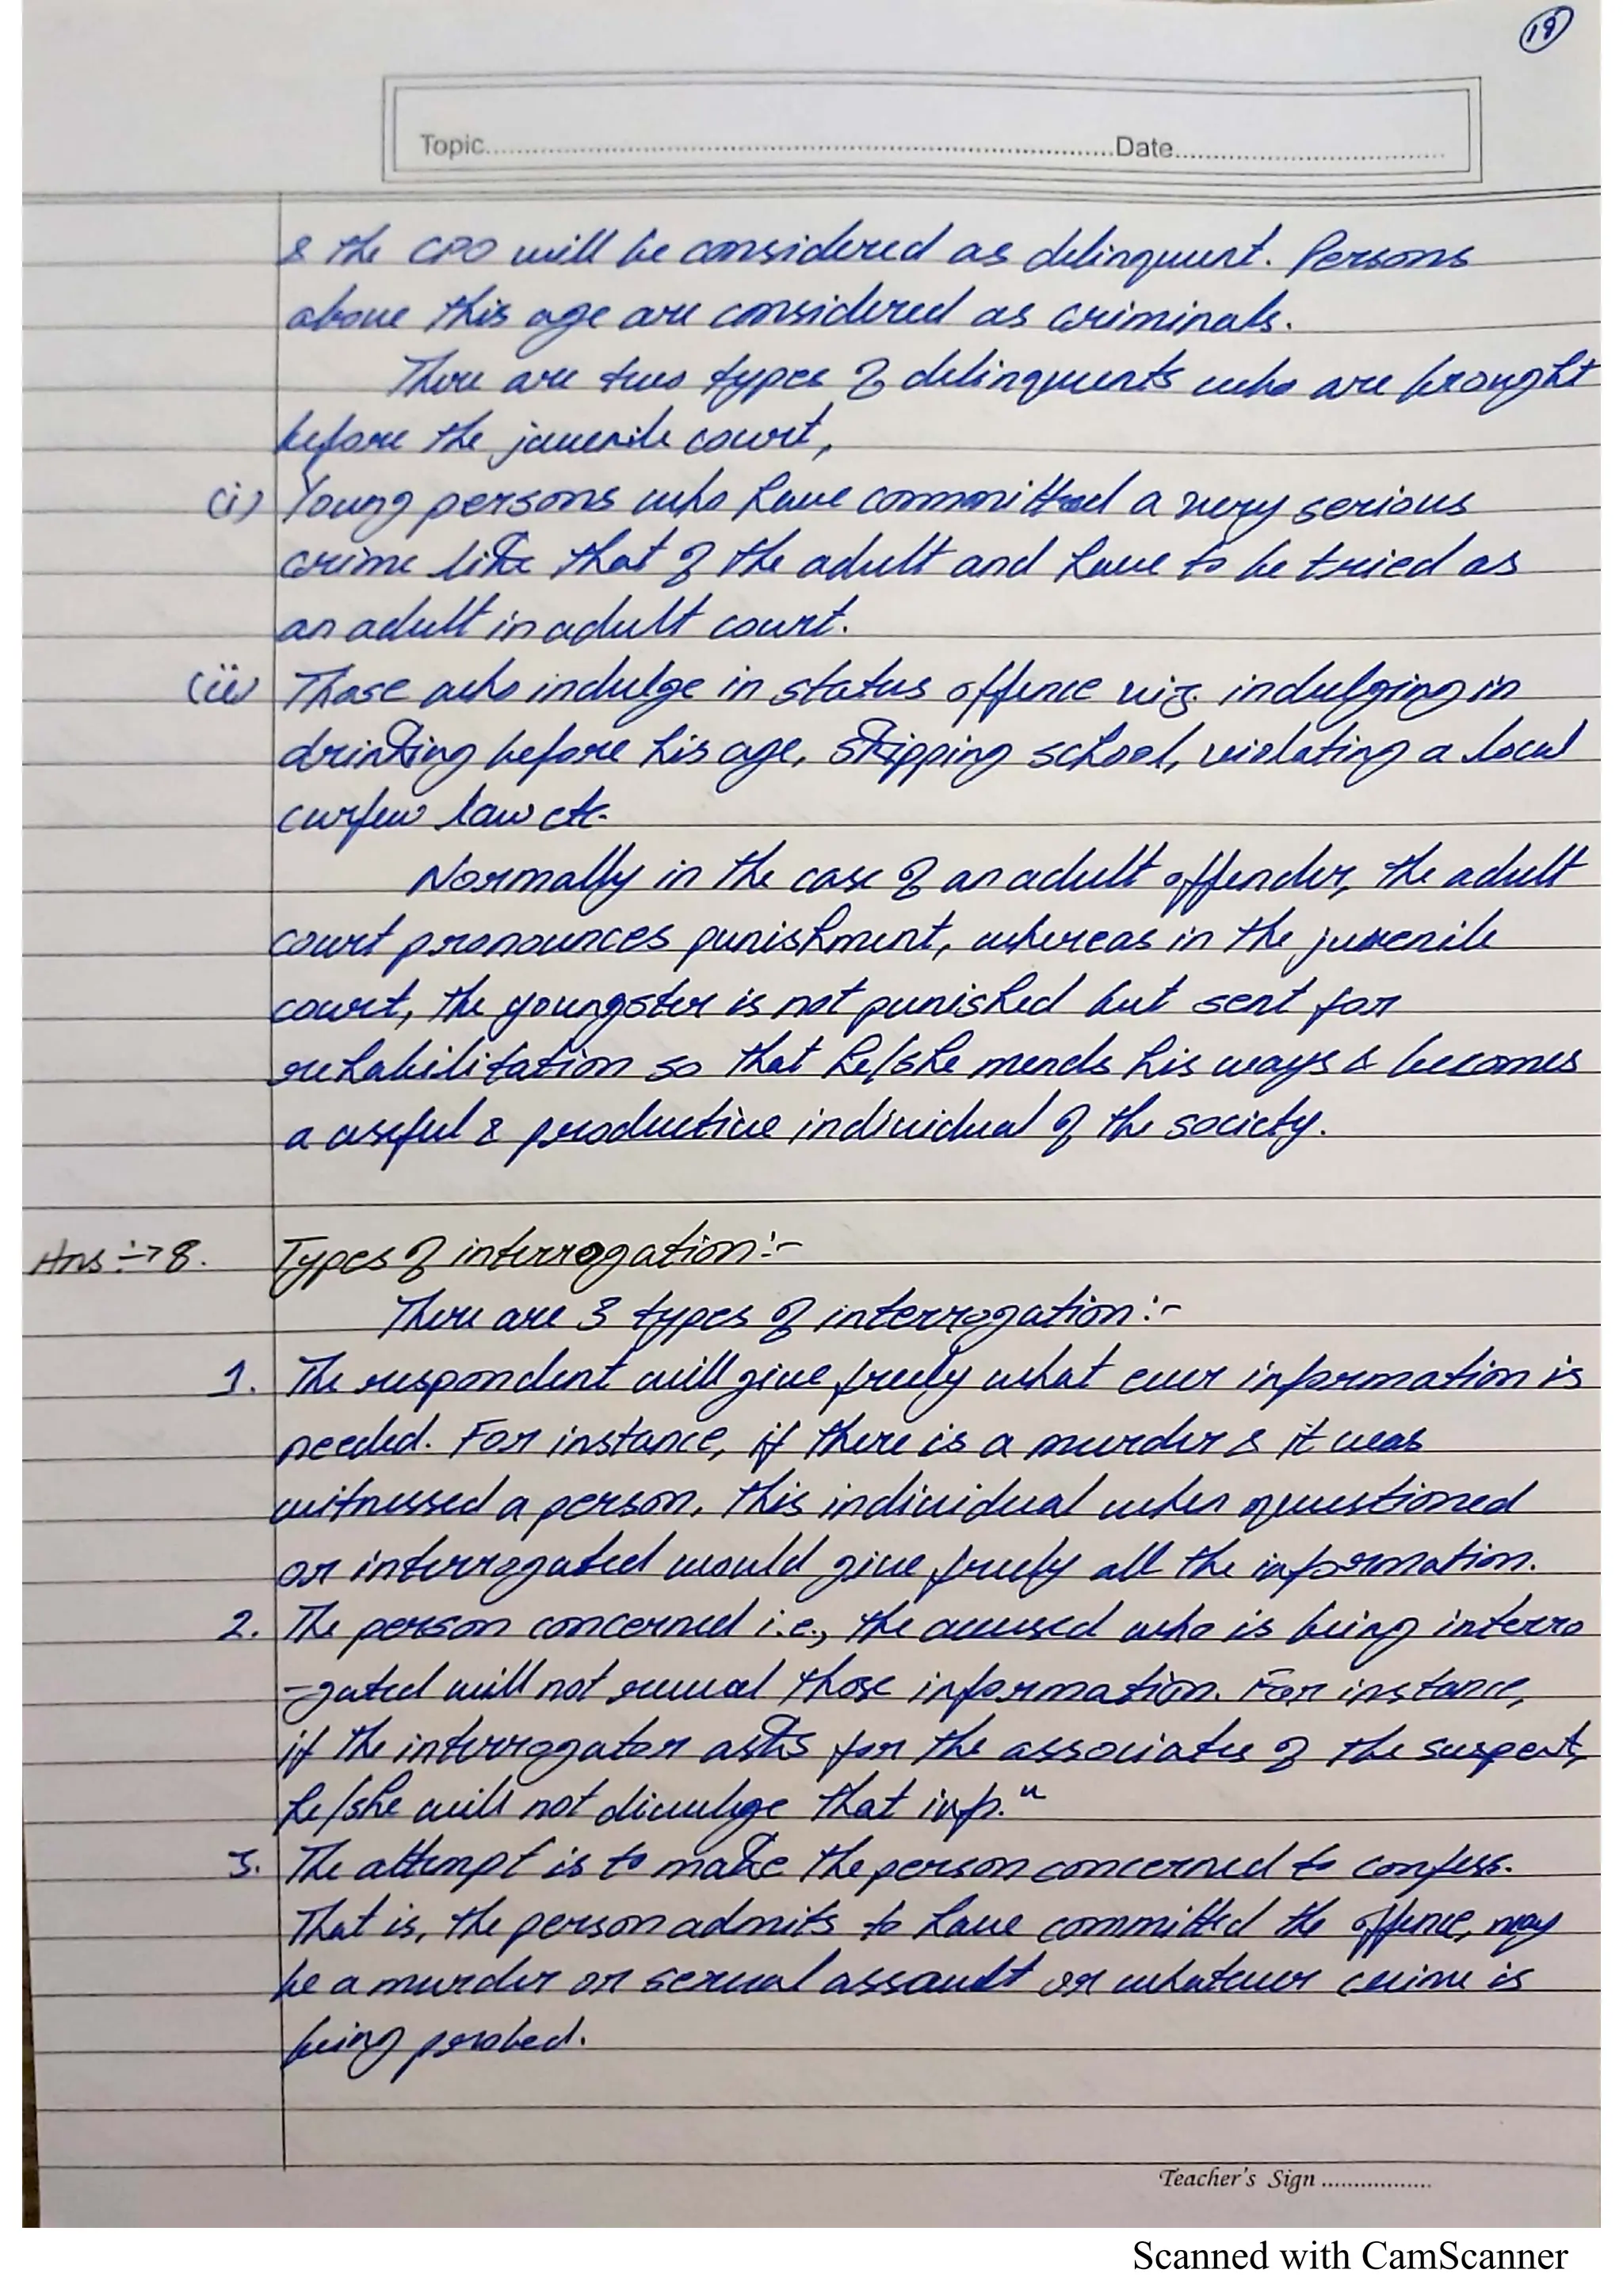 19
Topic Date
& the CPO will be considered as delinquent. Persons
above this age are considered as criminals.
There are two types of delinquents who are brought
before the juvenile court,
(i) Young persons who have committed a very serious
crime like that of the adult and have to be tried as
an adult in adult court.
(ii) Those who indulge in status offence viz. indulging in
drinking before his age, skipping school, violating a local
curfew law etc.
Normally in the case of an adult offender, the adult
court pronounces punishment, whereas in the juvenile
court, the youngster is not punished but sent for
rehabilitation so that he/she mends his ways & becomes
a useful & productive individual of the society.
Ans :→ 8. Types of interrogation :-
There are 3 types of interrogation :-
1. The respondent will give freely what ever information is
needed. For instance, if there is a murder & it was
witnessed a person, this individual when questioned
or interrogated would give freely all the information.
2. The person concerned i.e., the accused who is being interro
-gated will not reveal those information. For instance,
if the interrogator asks for the associates of the suspect,
he/she will not divulge that inf.n
3. The attempt is to make the person concerned to confess.
That is, the person admits to have committed the offence, may
be a murder or sexual assault or whatever crime is
being probed.
Teacher's Sign
Scanned with CamScanner